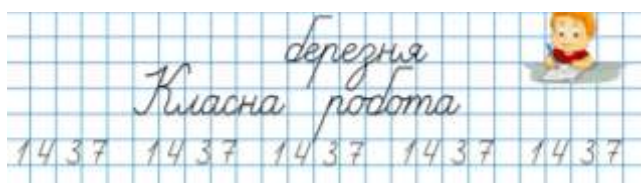 березня
Класна робота
14 37 14 37 14 37 14 37 14 37